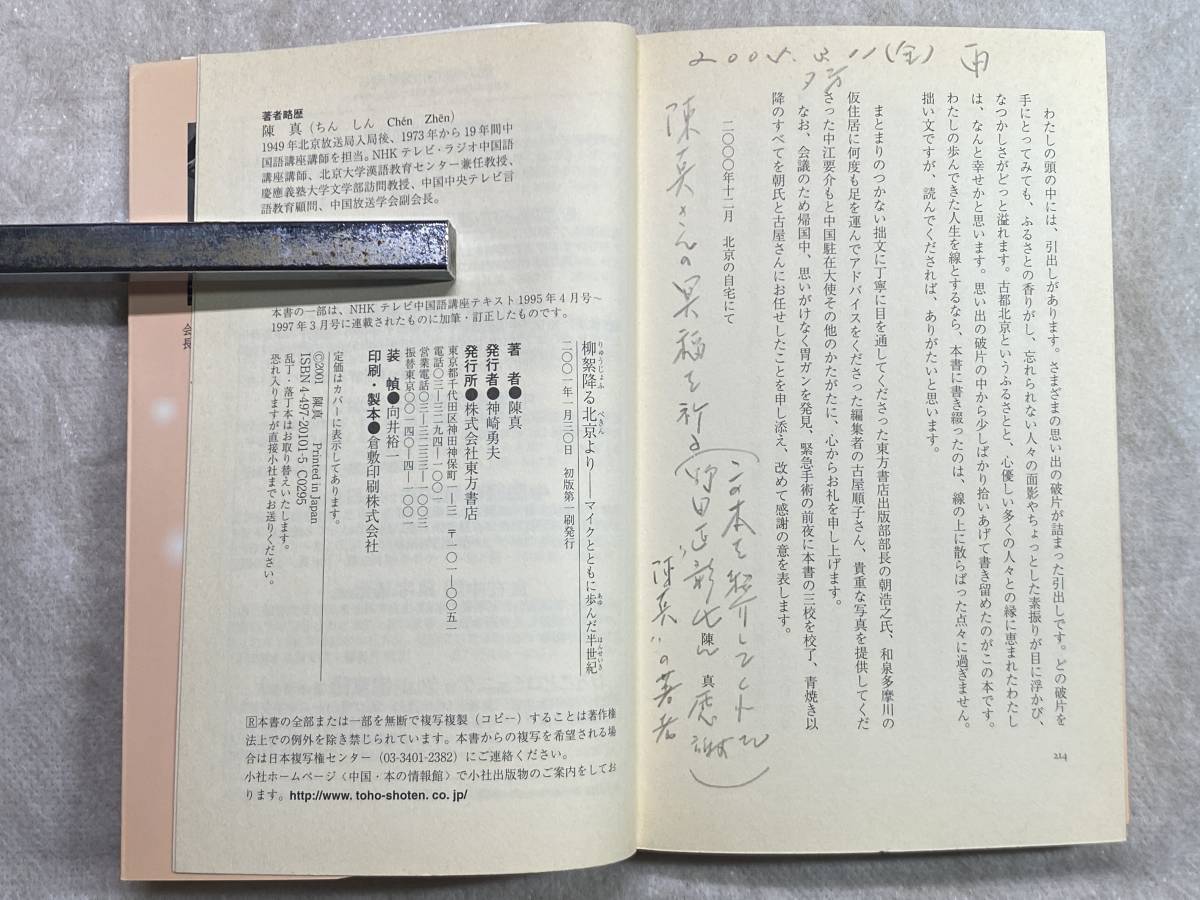 ２００５．３．１１（金）　雨
夕方
わたしの頭の中には、引出しがあります。さまざまの思い出の破片が詰まった引出しです。どの破片を
手にとってみても、ふるさとの香りがし、忘れられない人々の面影やちょっとした素振りが目に浮かび、
なつかしさがどっと溢れます。古都北京というふるさとと、心優しい多くの人々との縁に恵まれたわたし
は、なんと幸せかと思います。思い出の破片の中から少しばかり拾いあげて書き留めたのがこの本です。
わたしの歩んできた人生を線とするなら、本書に書き綴ったのは、線の上に散らばった点々に過ぎません。
拙い文ですが、読んでくだされば、ありがたいと思います。
まとまりのつかない拙文に丁寧に目を通してくださった東方書店出版部部長の朝浩之氏、和泉多摩川の
仮住居に何度も足を運んでアドバイスをくださった編集者の古屋順子さん、貴重な写真を提供してくだ
さった中江要介もと中国駐在大使その他のかたがたに、心からお礼を申し上げます。
なお、会議のため帰国中、思いがけなく胃ガンを発見、緊急手術の前夜に本書の三校を校了、青焼き以
降のすべてを朝氏と古屋さんにお任せしたことを申し添え、改めて感謝の意を表します。
二〇〇〇年十二月　北京の自宅にて
陳　真
陳真さんの冥福を祈る
（この本を紹介してくれた
"陳真"の著者
感謝）
214
著者略歴
陳　真（ちん　しん　Chén　Zhēn）
1949年北京放送局入局後、1973年から19年間中
国語講座講師を担当。NHKテレビ・ラジオ中国語
講座講師、北京大学漢語教育センター兼任教授、
慶應義塾大学文学部訪問教授、中国中央テレビ言
語教育顧問、中国放送学会副会長。
本書の一部は、NHK テレビ中国語講座テキスト1995年4月号〜
1997年3月号に連載されたものに加筆・訂正したものです。
柳絮降る北京より――マイクとともに歩んだ半世紀
りゅうじょふ　ぺきん　あゆ　はんせいき
二〇〇一年一月三〇日　初版第一刷発行
著　者●陳真
発行者●神崎勇夫
発行所●株式会社東方書店
東京都千代田区神田神保町一―三　〒一〇一―〇〇五一
電話〇三―三二九四―一〇〇一
営業電話〇三―三二三三―一〇〇三
振替東京〇〇一四〇―四―一〇〇一
装　幀●向井裕一
印刷・製本●倉敷印刷株式会社
定価はカバーに表示してあります。
©2001　陳真　Printed in Japan
ISBN 4-497-20101-5 C0295
乱丁・落丁本はお取り替えいたします。
恐れ入りますが直接小社までお送りください。
Ⓡ本書の全部または一部を無断で複写複製（コピー）することは著作権
法上での例外を除き禁じられています。本書からの複写を希望される場
合は日本複写権センター（03-3401-2382）にご連絡ください。
小社ホームページ〈中国・本の情報館〉で小社出版物のご案内をしてお
ります。http://www. toho-shoten. co. jp/
会長